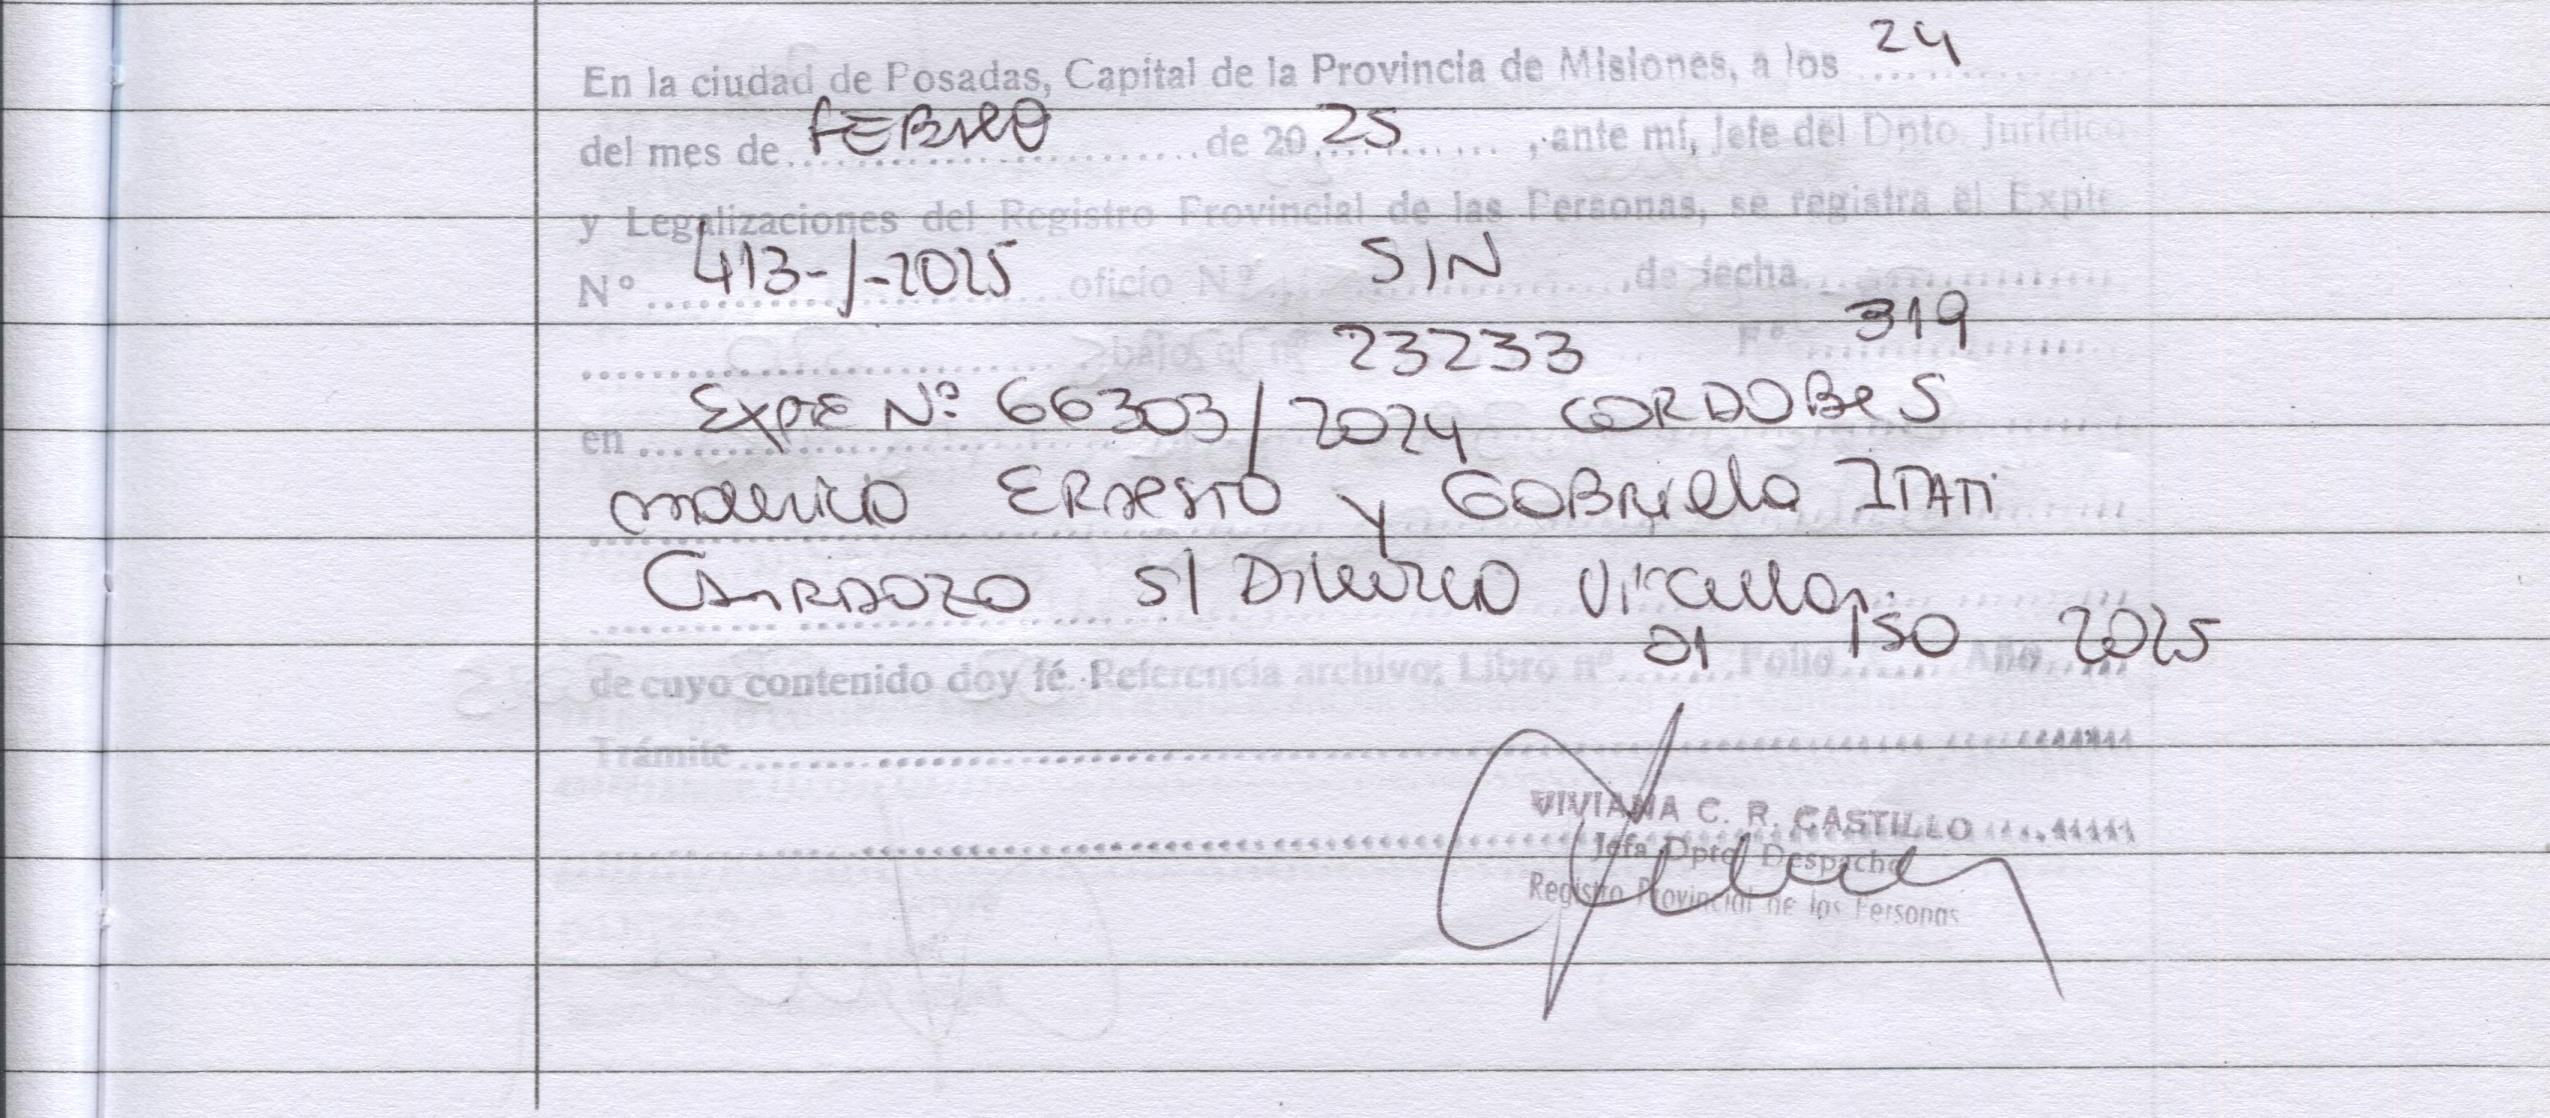 En la ciudad de Posadas, Capital de la Provincia de Misiones, a los 24
del mes de FEBRERO de 20 25, ante mí, Jefe del Dpto. Jurídico
y Legalizaciones del Registro Provincial de las Personas, se registra el Expte.
Nº 413-J-2025 oficio Nº SIN de fecha
bajo el nº 23233 Fº 319
en EXPTE Nº 66303/2024 CORDOBES
MAURICIO ERNESTO y GABRIELA ITATI
CARDOZO S/ Divorcio Vincular
de cuyo contenido doy fé. Referencia archivo; Libro nº 01 Folio 150 Año 2025
Trámite
VIVIANA C. R. CASTILLO
Jefa Dpto. Despacho
Registro Provincial de las Personas